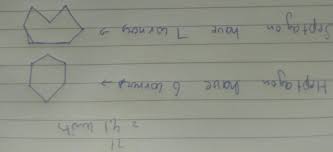 = 41 units
Heptagon have 6 corners →
Septagon have 7 corners →